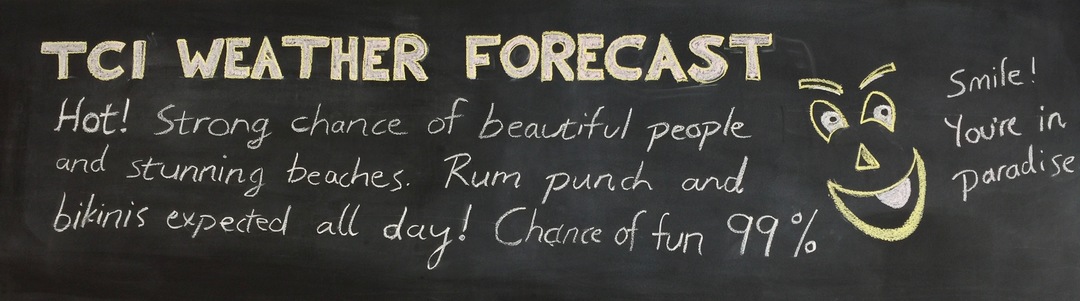 TCI WEATHER FORECAST
Hot! Strong chance of beautiful people
and stunning beaches. Rum punch and
bikinis expected all day! Chance of fun 99%
Smile!
You're in
paradise